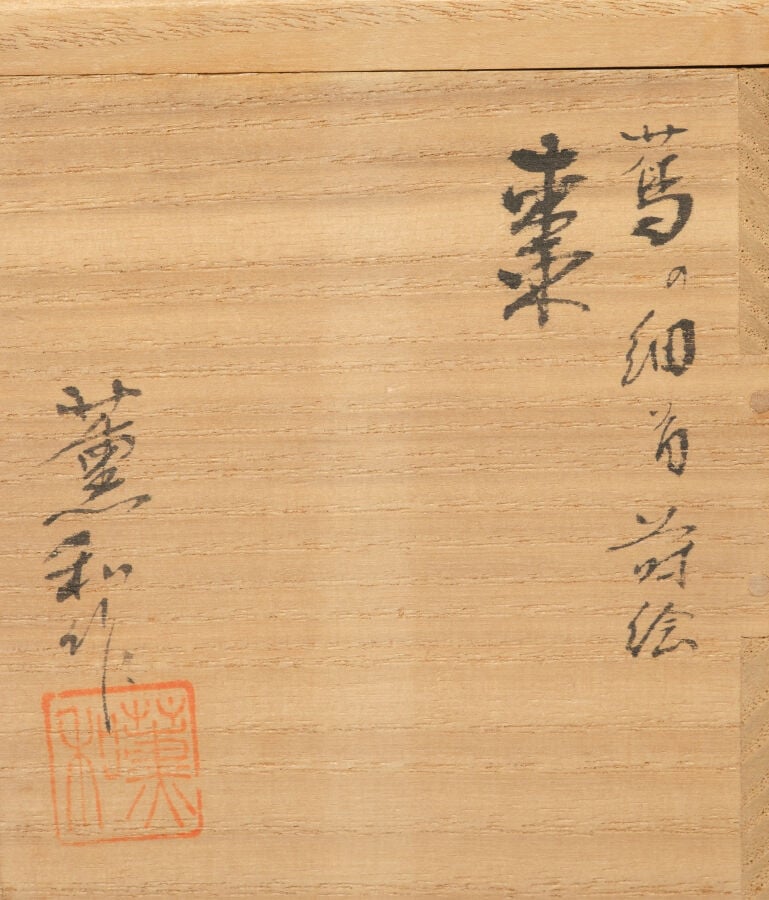 蔦の細道蒔絵
棗
薫和作
薫和